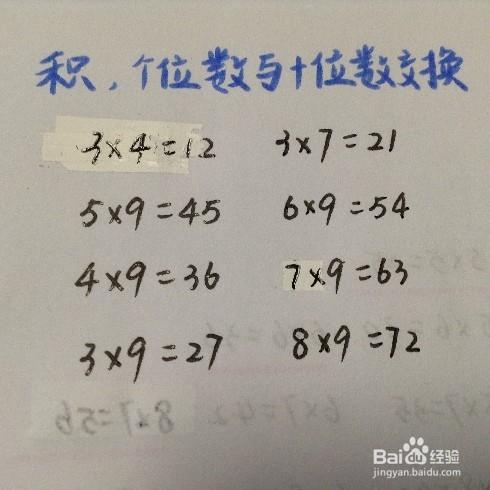 积，个位数与十位数交换
3×4=12 3×7=21
5×9=45 6×9=54
4×9=36 7×9=63
3×9=27 8×9=72
8×7=56 6×7=42
Baidu经验
jingyan.baidu.com